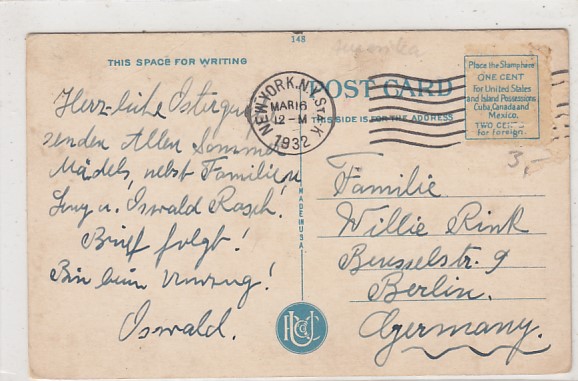 148
THIS SPACE FOR WRITING
POST CARD
THIS SIDE IS FOR THE ADDRESS
Place the Stamp here
ONE CENT
For United States
and Island Possessions
Cuba, Canada and
Mexico.
TWO CENTS
for foreign.
3,-
NEW YORK, N.Y. STA. K
MAR 16
12-M
1932
Herzliche Ostergrü
senden Allen
Mädels, nebst Familie
u. Oswald Rasch.
Brief folgt!
Bin beim Umzug!
Oswald.
MADE IN U.S.A.
Familie
Willie Rink
Beusselstr. 9
Berlin.
Germany.